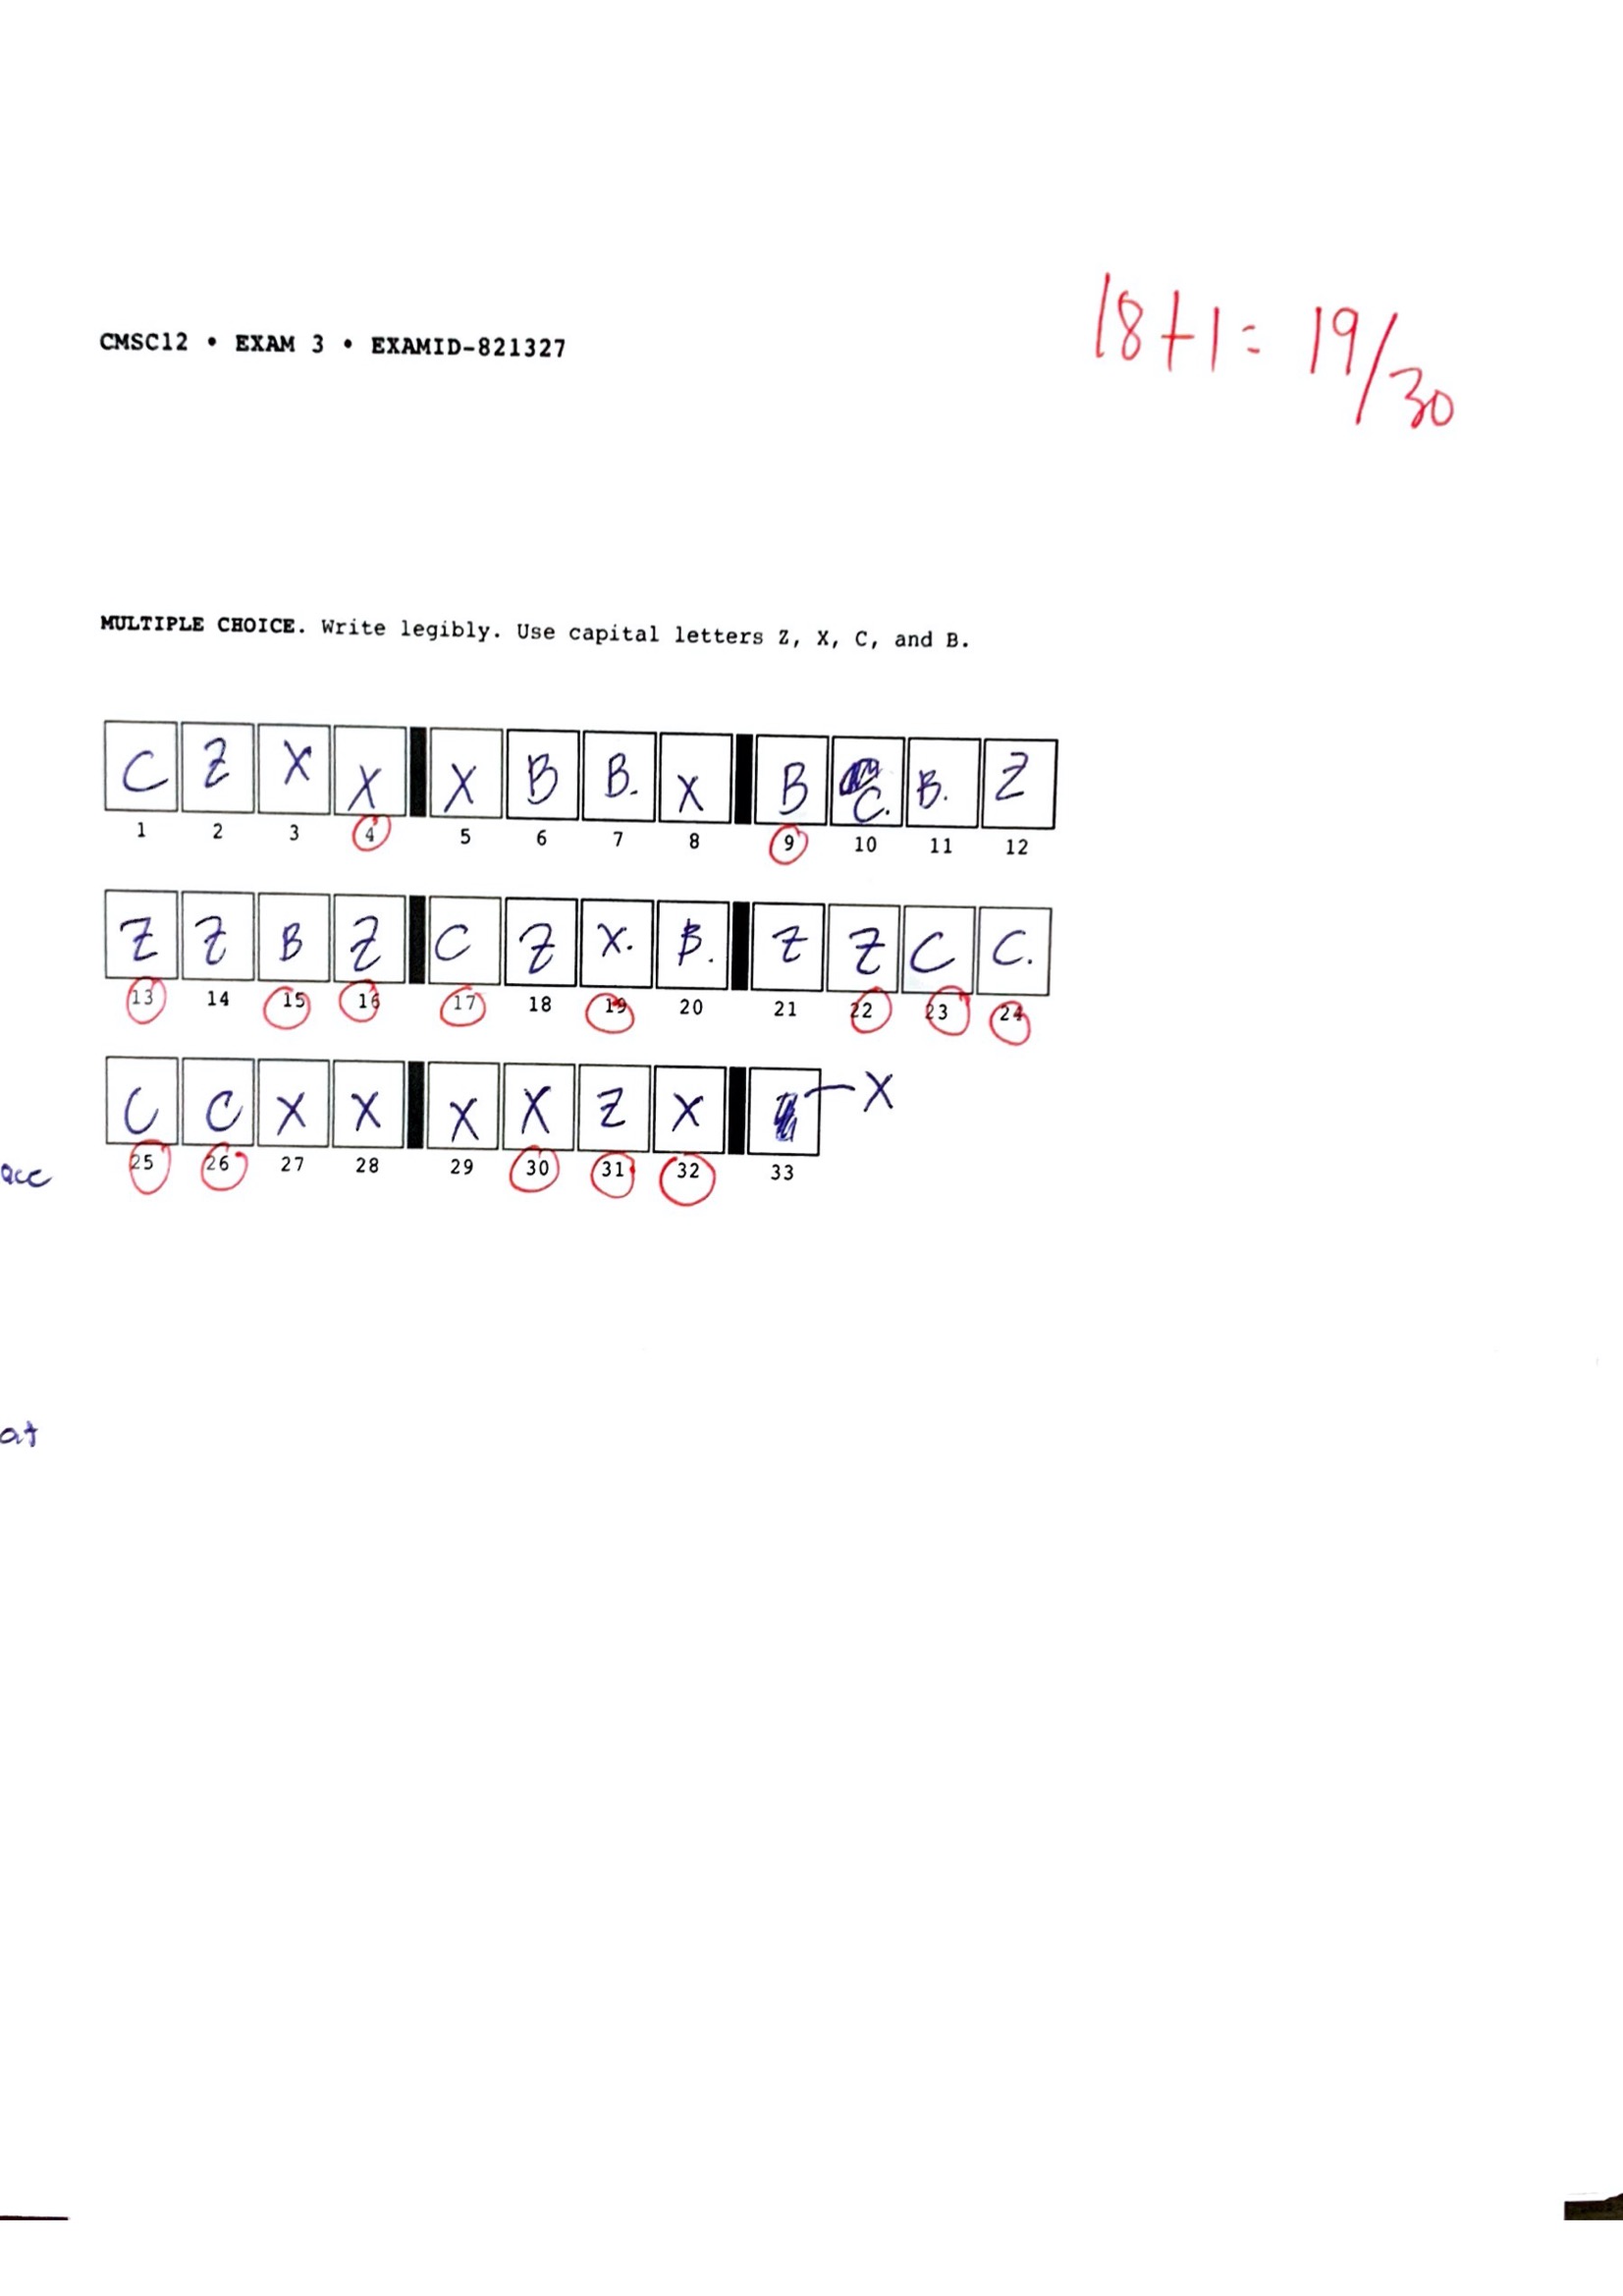 CMSC12 • EXAM 3 • EXAMID-821327
18+1= 19/30
MULTIPLE CHOICE. Write legibly. Use capital letters Z, X, C, and B.
C Z X X X B B. X B C. B. Z
1 2 3 4 5 6 7 8 9 10 11 12
Z Z B Z C Z X. B. Z Z C C.
13 14 15 16 17 18 19 20 21 22 23 24
C C X X X X Z X X
25 26 27 28 29 30 31 32 33
acc
at